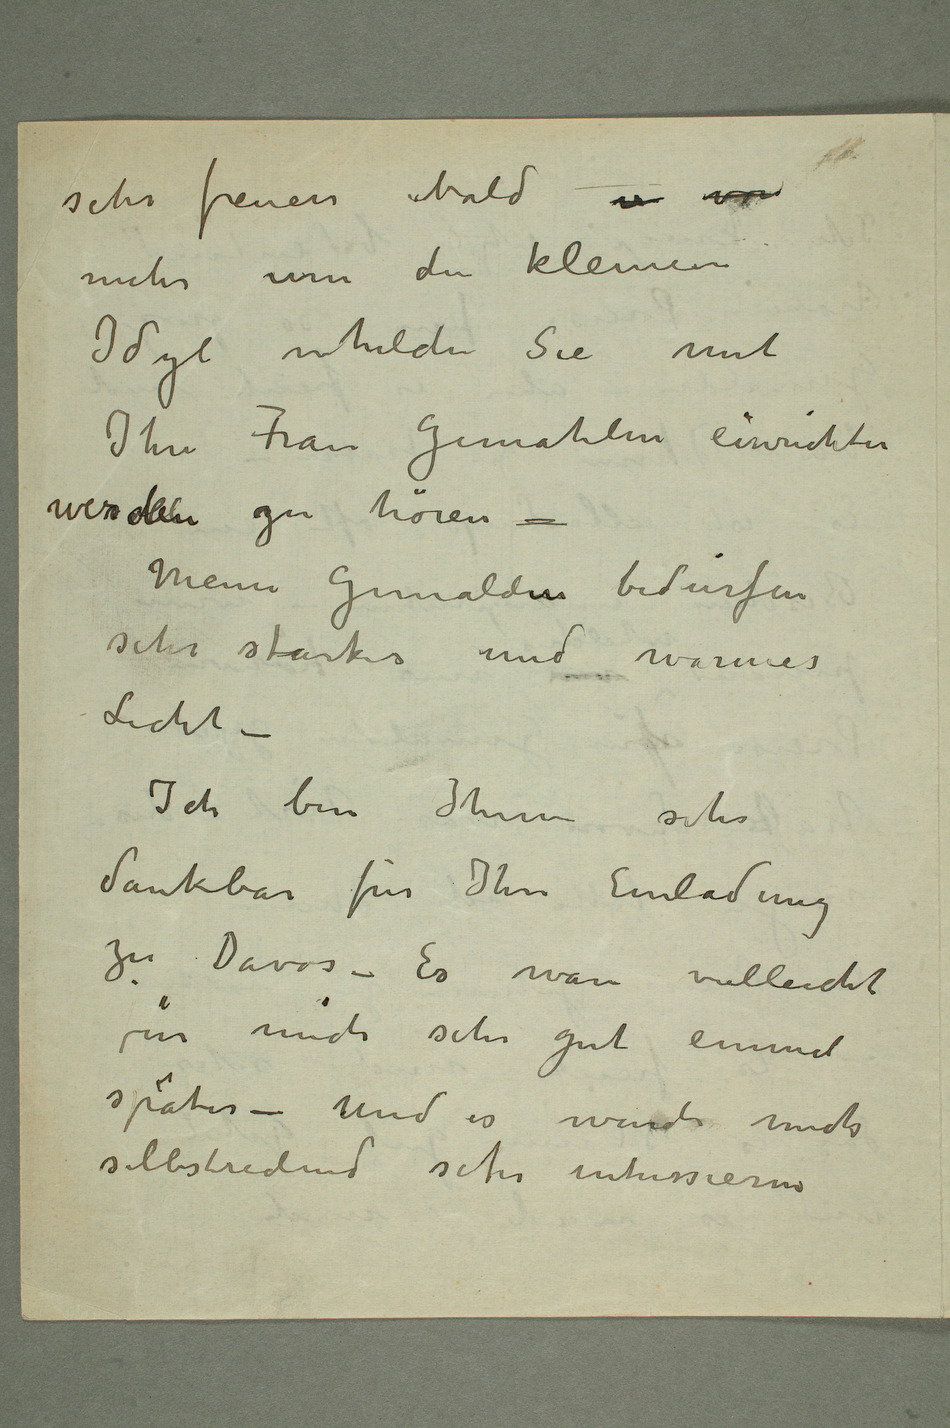 sehr freuen bald
mehr um die kleinen
Idyl welche Sie mit
Ihre Frau Gemahlin einrichten
werden zu hören –
Meine Gemälden bedürfen
sehr starkes und warmes
Licht –
Ich bin Ihnen sehr
dankbar für Ihre Einladung
zu Davos – Es wäre vielleicht
für mich sehr gut einmal
später – Und es würde mich
selbstredend sehr interssieren